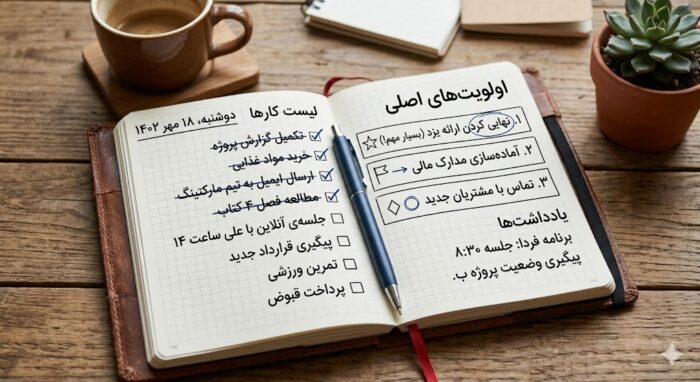 لیست کارها
دوشنبه، ۱۸ مهر ۱۴۰۲
تکمیل گزارش پروژه
خرید مواد غذایی
ارسال ایمیل به تیم مارکتینگ
مطالعه فصل ۴ کتاب
جلسه‌ی آنلاین با علی ساعت ۱۴
پیگیری قرارداد جدید
تمرین ورزشی
پرداخت قبوض
اولویت‌های اصلی
۱. نهایی کردن ارائه یزد (بسیار مهم!)
۲. آماده‌سازی مدارک مالی
۳. تماس با مشتریان جدید
یادداشت‌ها
برنامه فردا: جلسه ۸:۳۰
پیگیری وضعیت پروژه ب.